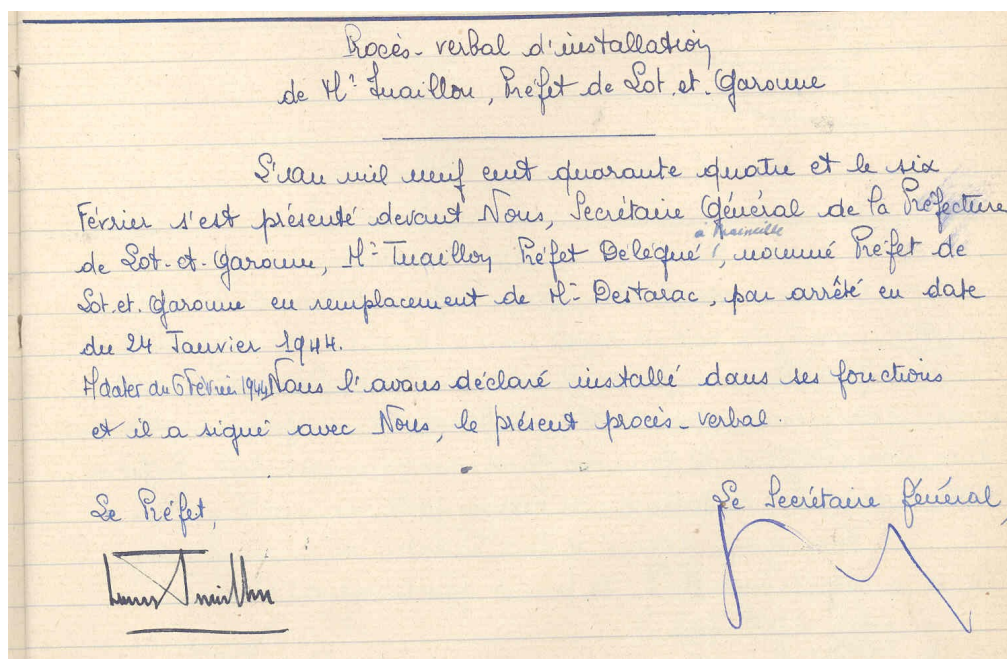 Procès-verbal d'installation
de Mr Tuaillon, Préfet de Lot.et.Garonne
L'an mil neuf cent quarante quatre et le six
Février s'est présenté devant Nous, Secrétaire Général de la Préfecture
à
de Lot-et-Garonne, Mr Tuaillon Préfet Délégué, nommé Préfet de
Lot.et.Garonne en remplacement de Mr Destarac, par arrêté en date
du 24 Janvier 1944.
A dater du 6 Février 1944 Nous l'avons déclaré installé dans ses fonctions
et il a signé avec Nous, le présent procès-verbal.
Le Préfet,
Le Secrétaire Général,